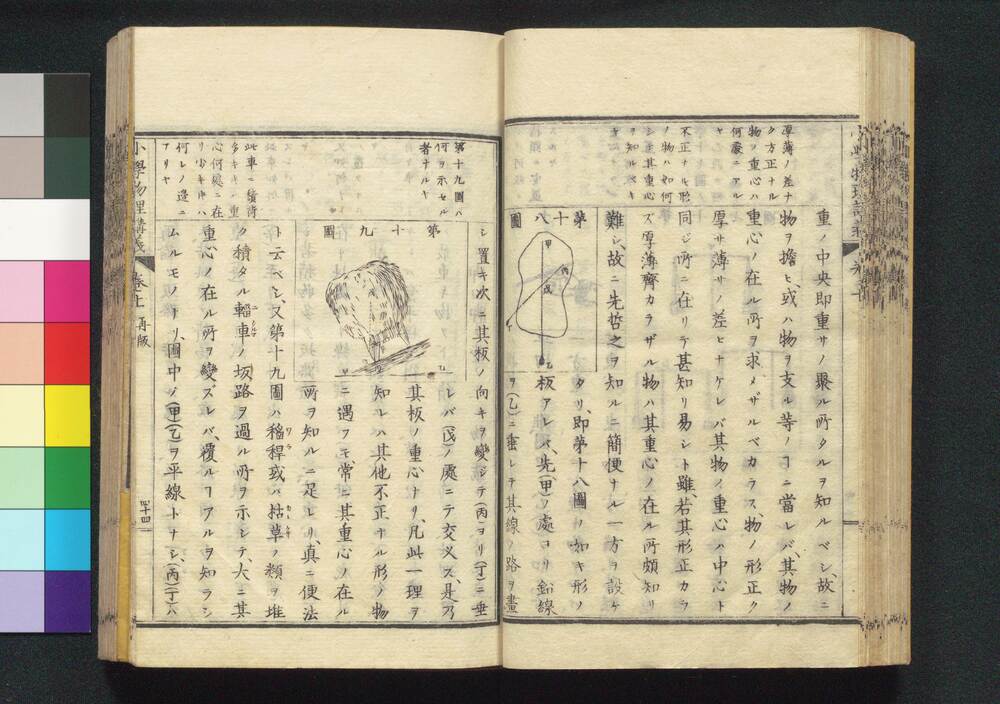 厚薄ノ差ナ
ク方正ナル
物ノ重心ハ
何處ニアル
ヤ
不正ナル形
ノ物ハ如何
シテ其重心
ヲ知ルベキ
重ノ中央即重サノ聚ル所タルヲ知ルベシ、故ニ
物ヲ擔ヒ、或ハ物ヲ支ル等ノヿニ當レバ、其物ノ
重心ノ在ル所ヲ求メザルベカラス、物ノ形正ク
厚サ薄サノ差ヒナケレバ其物ノ重心ハ中心ト
同ジ所ニ在リテ甚知リ易シト雖、若其形正カラ
ズ厚薄齊カラザル物ハ其重心ノ在ル所頗知リ
難シ、故ニ先哲之ヲ知ルニ簡便ナル一方ヲ設ケ
タリ、即第十八圖ノ如キ形ノ
板アレバ、先(甲)ノ處ヨリ鉛線
ヲ(乙)ニ垂レテ其線ノ路ヲ畫
第十八圖
甲
丙
戊
丁
乙
第十九圖ハ
何ヲ示セル
者ナルヤ
此車ニ積荷
多キキハ重
心何處ニ在
リ少キキハ
何レノ邊ニ
アリヤ
シ置キ次ニ其板ノ向キヲ變シテ(丙)ヨリ(丁)ニ垂
レバ(戊)ノ處ニテ交叉ス、是乃
其板ノ重心ナリ、凡此一理ヲ
知レハ其他不正ナル形ノ物
ニ遇フモ、常ニ其重心ノ在ル
所ヲ知ルニ足レリ、真ニ便法
ト云ベシ、又第十九圖ハ稽稈或ハ枯草ノ類ヲ堆
ク積タル輜車ノ坂路ヲ過ル所ヲ示シテ大ニ其
重心ノ在ル所ヲ變ズレバ、覆ルヿアルヲ知ラシ
ムルモノナリ、圖中ノ(甲)(乙)ヲ平線トナシ、(丙)(丁)ハ
第十九圖
小學物理講義
卷上
再版
四十四